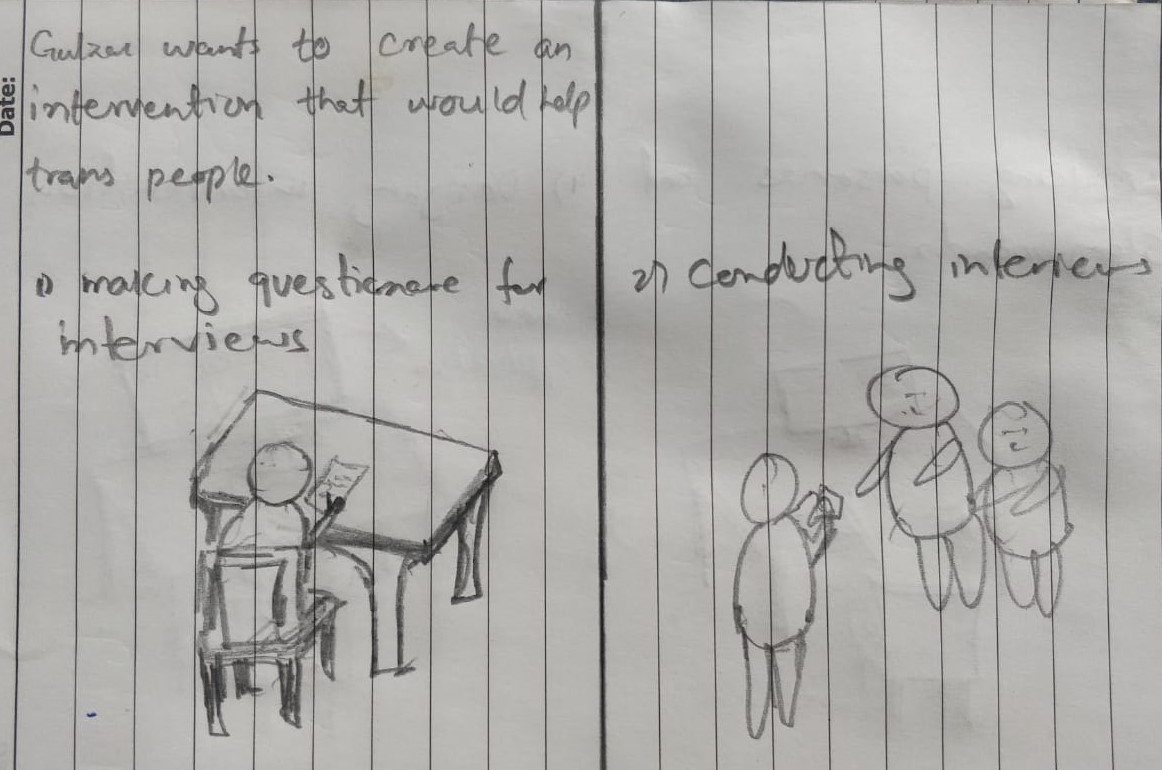 Date:
Gulzar wants to create an
intervention that would help
trans people.
1) making questionare for
interviews
2) Conducting interviews